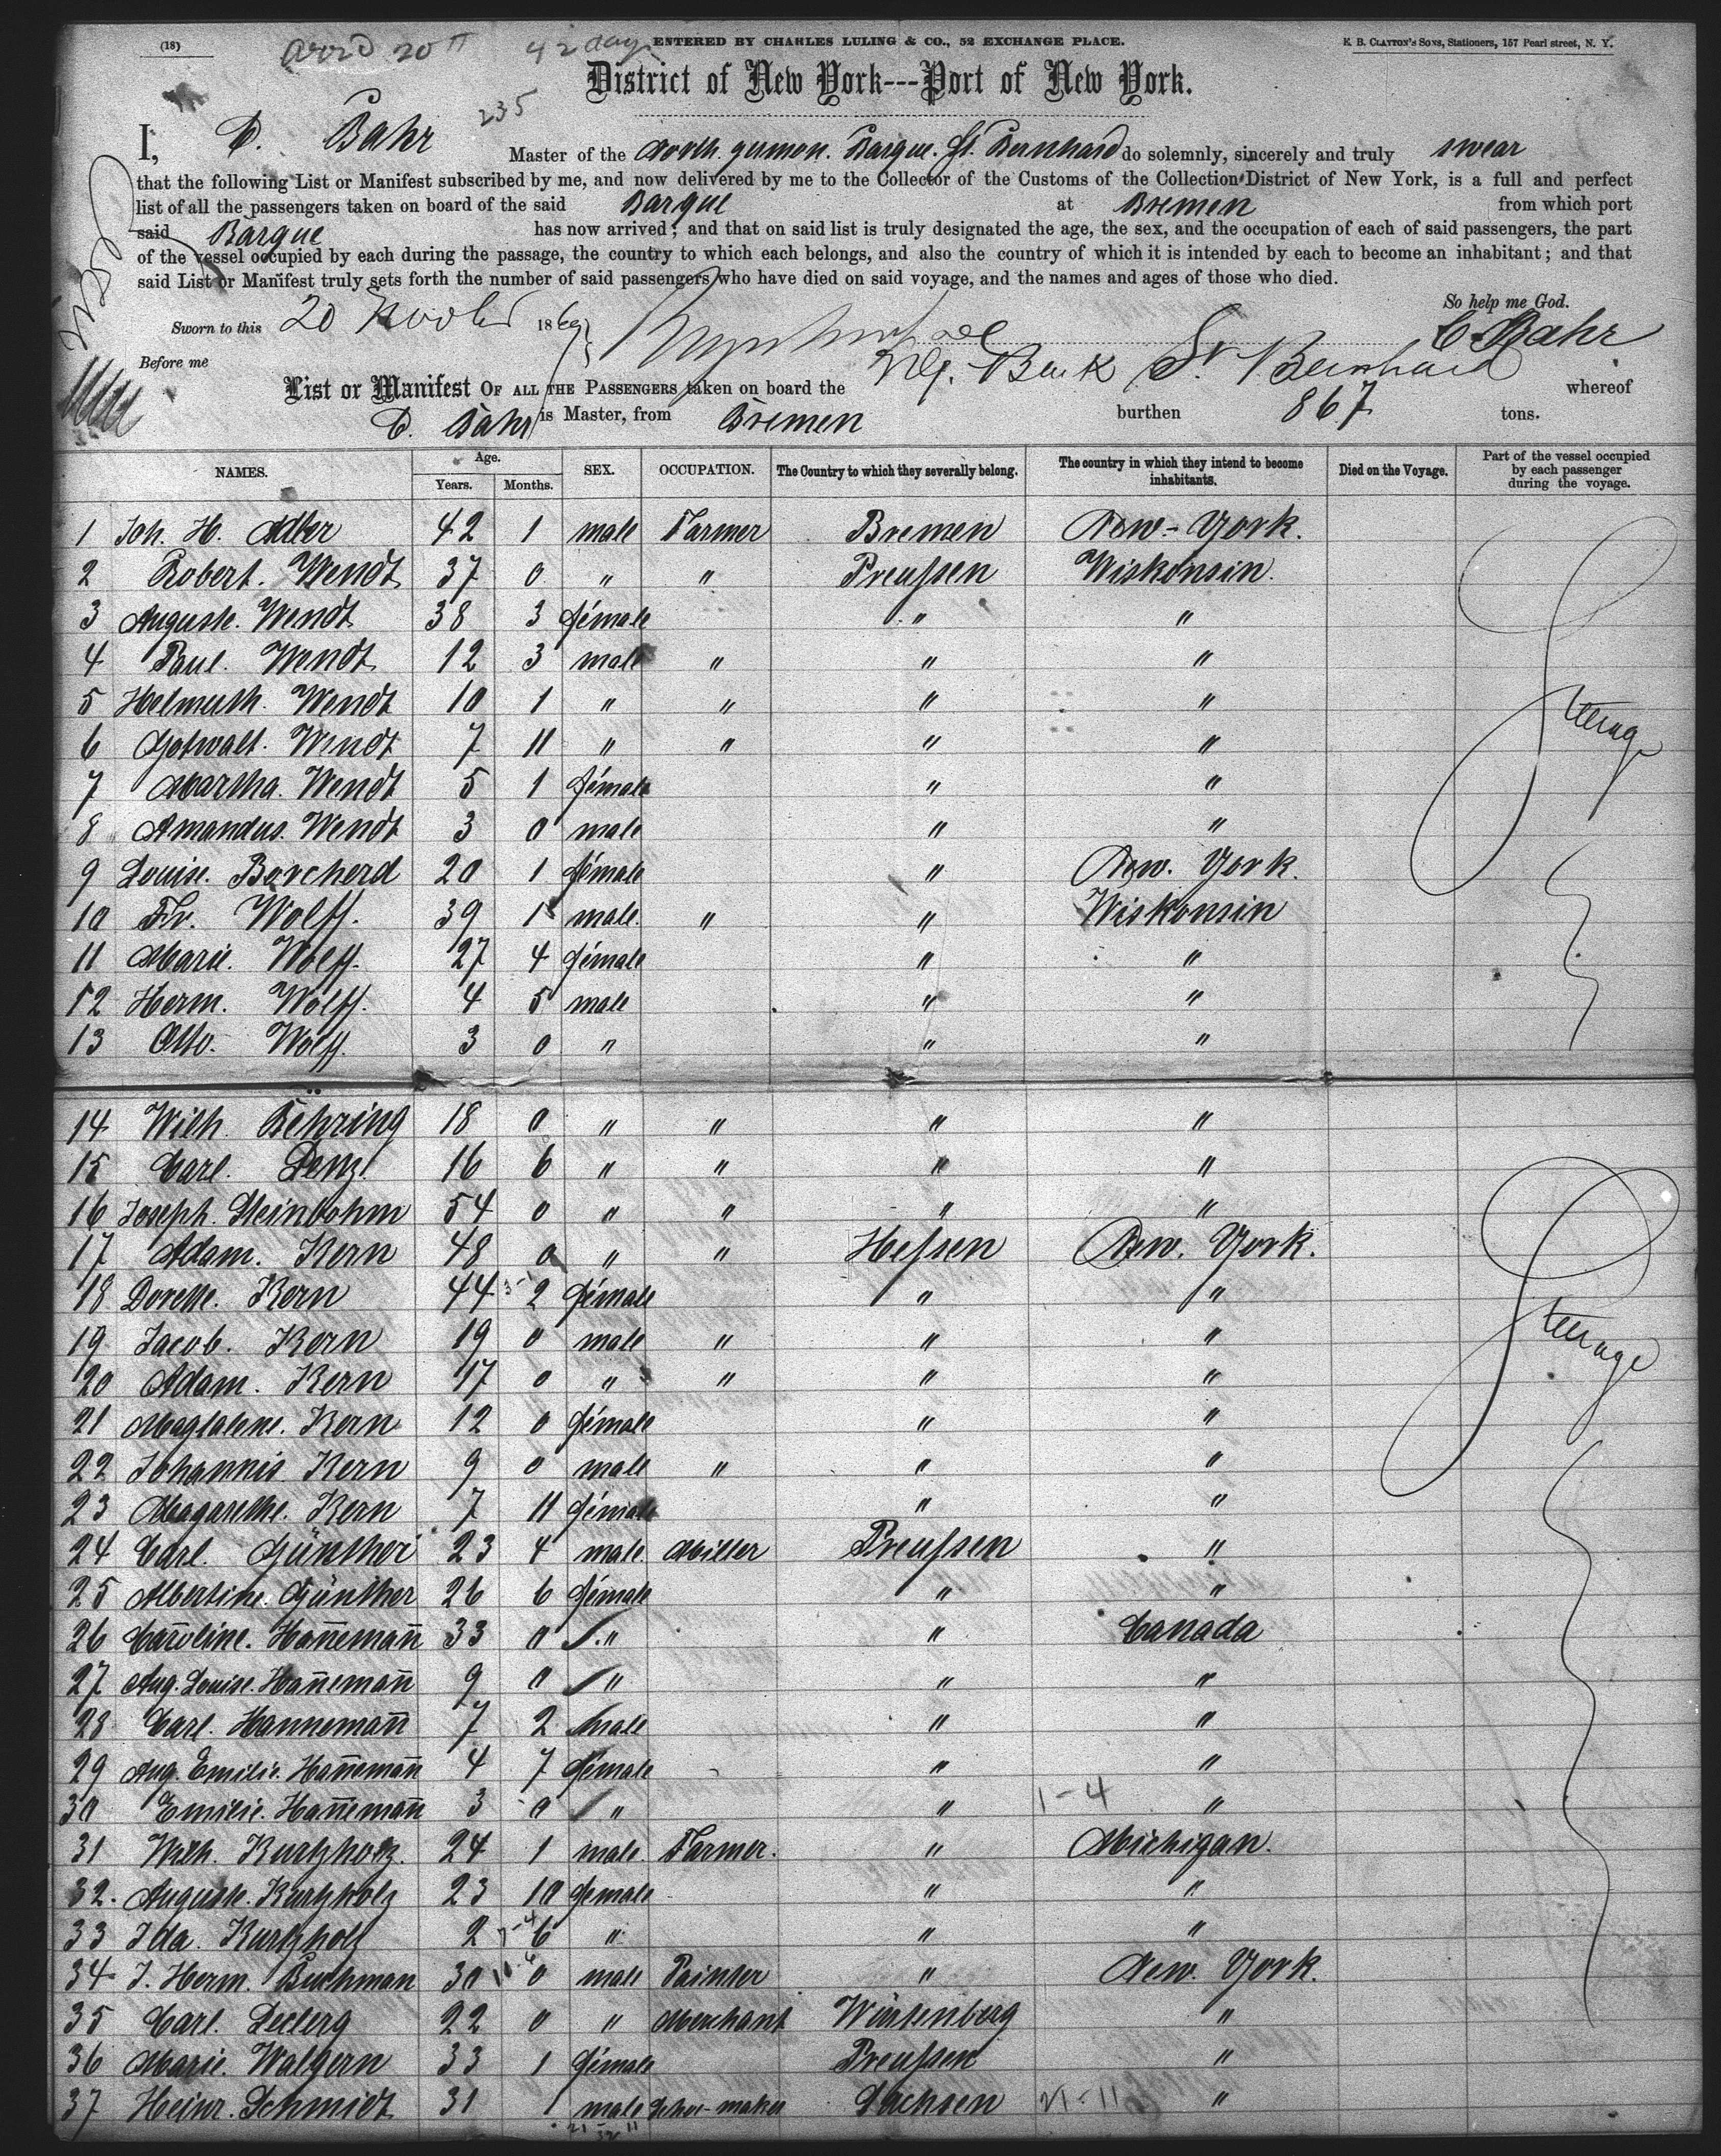 (18) arrd 20th 42 days ENTERED BY CHARLES LULING & CO., 52 EXCHANGE PLACE. E. B. CLAYTON'S SONS, Stationers, 157 Pearl street, N. Y.
District of New York---Port of New York.
235
I, C. Bahr Master of the North german. Barque. St. Bernhard do solemnly, sincerely and truly swear
that the following List or Manifest subscribed by me, and now delivered by me to the Collector of the Customs of the Collection District of New York, is a full and perfect
list of all the passengers taken on board of the said Barque at Bremen from which port
said Barque has now arrived; and that on said list is truly designated the age, the sex, and the occupation of each of said passengers, the part
of the vessel occupied by each during the passage, the country to which each belongs, and also the country of which it is intended by each to become an inhabitant; and that
said List or Manifest truly sets forth the number of said passengers who have died on said voyage, and the names and ages of those who died.
So help me God.
Sworn to this 20 Novber 1869 C Bahr
Before me
List or Manifest OF ALL THE PASSENGERS taken on board the Ng. Bark St. Bernhard whereof
C. Bahr is Master, from Bremen burthen 867 tons.
NAMES. Age. Years. Months. SEX. OCCUPATION. The Country to which they severally belong. The country in which they intend to become inhabitants. Died on the Voyage. Part of the vessel occupied by each passenger during the voyage.
1 Joh. H. Adler 42 1 male Farmer Bremen New-York.
2 Robert. Wendt 37 0 " " Preußen Wiskonsin.
3 Auguste. Wendt 38 3 female " "
4 Paul. Wendt 12 3 male " " "
5 Helmuth. Wendt 10 1 " " " "
6 Gotwalt. Wendt 7 11 " " " " Steerage
7 Martha. Wendt 5 1 female " "
8 Amandus. Wendt 3 0 male " "
9 Louise. Borcherd 20 1 female " New. York.
10 Fr. Wolff. 39 1 male. " " Wiskonsin
11 Marie. Wolff. 27 4 female " "
12 Herm. Wolff. 4 5 male " "
13 Otto. Wolff. 3 0 " " "
14 Wilh. Behring 18 0 " " " "
15 Carl. Denz. 16 6 " " " "
16 Joseph. Steinbohm 54 0 " " " "
17 Adam. Kern 48 0 " " Heßen New. York.
18 Dorette. Kern 44 2 female " "
19 Jacob. Kern 19 0 male " " " Steerage
20 Adam. Kern 17 0 " " " "
21 Magdalene. Kern 12 0 female " "
22 Johannis. Kern 9 0 male " " "
23 Magarethe. Kern 7 11 female " "
24 Carl. Günther 23 4 male. Miller Preußen "
25 Albertine. Günther 26 6 female " "
26 Caroline. Han̄eman̄ 33 0 " " Canada
27 Aug. Louise. Han̄eman̄ 9 0 " " "
28 Carl. Hanneman̄ 7 2 male " "
29 Aug. Emilie. Han̄eman̄ 4 7 female " "
30 Emilie. Han̄eman̄ 3 0 " " 1-4 "
31 Wilh. Kurtzholz. 24 1 male Farmer. " Michigan.
32. Auguste. Kurtzholz 23 10 female " "
33 Ida. Kurtzholz 2 6 " " "
34 J. Herm. Buchman 30 0 male Painter " New. York.
35 Carl. Leclerg 22 0 " Merchant Würtenberg "
36 Marie. Walgern 33 1 female Preußen "
37 Heinr. Schmidt 31 1 male Schoe-maker Sachsen 21-11 "